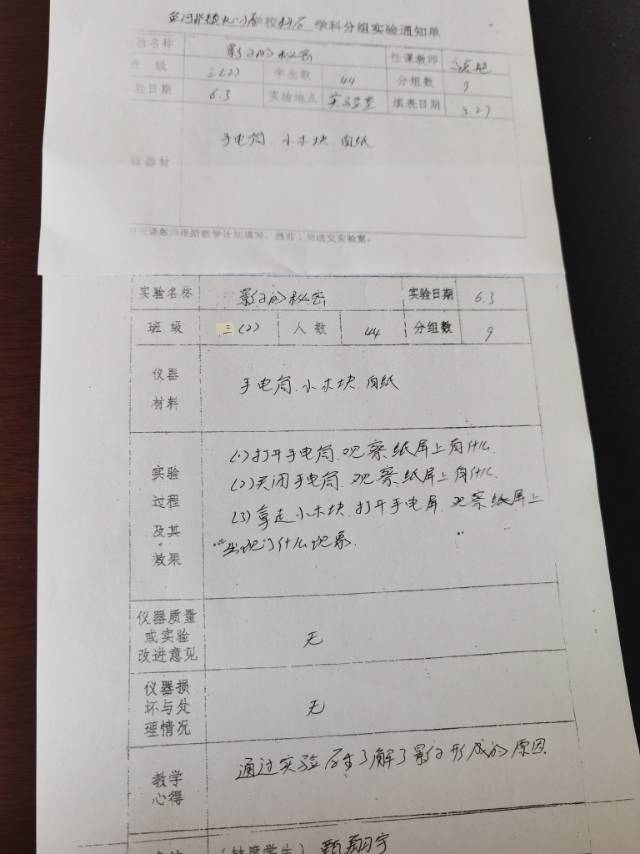 中心小学校科学 学科分组实验通知单
验名称 影子的秘密 任课教师
级 三(2) 学生数 44 分组数 9
验日期 6.3 实验地点 实验室 填表日期 5.27
器材 手电筒、小木块、白纸
实验名称 影子的秘密 实验日期 6.3
班级 三(2) 人数 44 分组数 9
仪器
材料 手电筒、小木块、白纸
实验
过程
及其
效果
(1)打开手电筒,观察纸屏上有什么.
(2)关闭手电筒,观察纸屏上有什么.
(3)拿走小木块,打开手电屏,观察纸屏上
出现了什么现象.
仪器质量
或实验
改进意见
无
仪器损
坏与处
理情况
无
教学
心得
通过实验学生了解了影子形成的原因
(缺席学生)